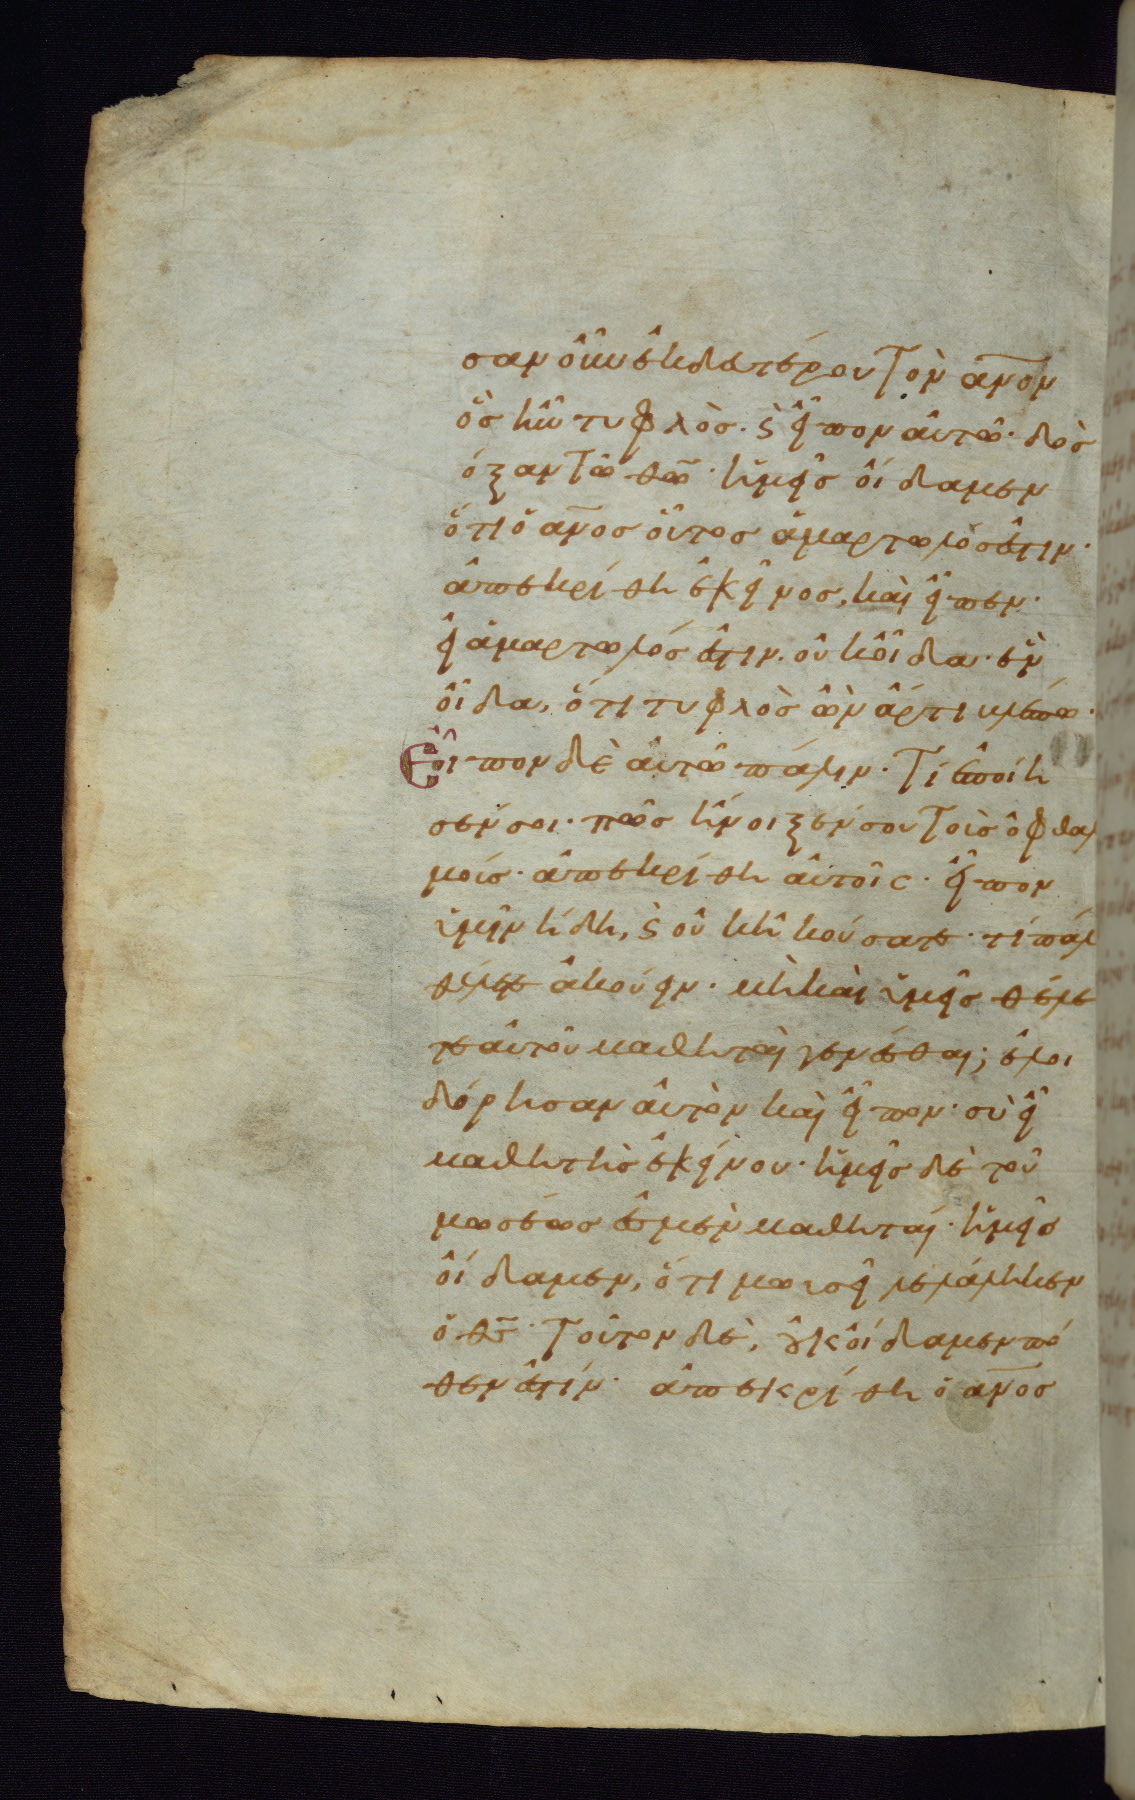 σαν οὖν ἐκ δευτέρου τὸν ἄνον
ὃς ἦν τυφλὸσ. ϗ εἶπον αὐτῶ· δὸσ
δόξαν τῶ θῶ· ἡμεῖσ οἴδαμεν
ὅτι ὁ ἄνος οὗτος ἁμαρτωλόσ ἐστιν·
ἀπεκρίθη ἐκεῖνος, καὶ εἶπεν·
εἰ ἁμαρτωλόσ ἐστιν. οὐκ οἶδα· ἓν
οἶδα, ὅτι τυφλὸσ ὢν ἄρτι βλέπω·
Εἶπον δὲ αὐτῶ πάλιν· Τί ἐποίη
σέν σοι· πῶσ ἤνοιξέν σου τοὺσ ὀφθαλ
μούσ· ἀπεκρίθη αὐτοῖς· εἶπον
ὑμῖν ἤδη, ϗ οὐκ ἠκούσατε· τί πάλ
θέλετε ἀκούειν· μὴ καὶ ὑμεῖσ θέλε
τε αὐτοῦ μαθηταὶ γενέσθαι; ἐλοι
δόρησαν αὐτὸν καὶ εἶπον· σὺ εἶ
μαθητὴσ ἐκείνου· ἡμεῖσ δὲ τοῦ
μωσέωσ ἐσμὲν μαθηταί· ἡμεῖσ
οἴδαμεν, ὅτι μωυσεῖ λελάληκεν
ὁ θσ· τοῦτον δὲ, οὐκ οἴδαμεν πό
θεν ἐστίν· ἀπεκρίθη ὁ ἄνος